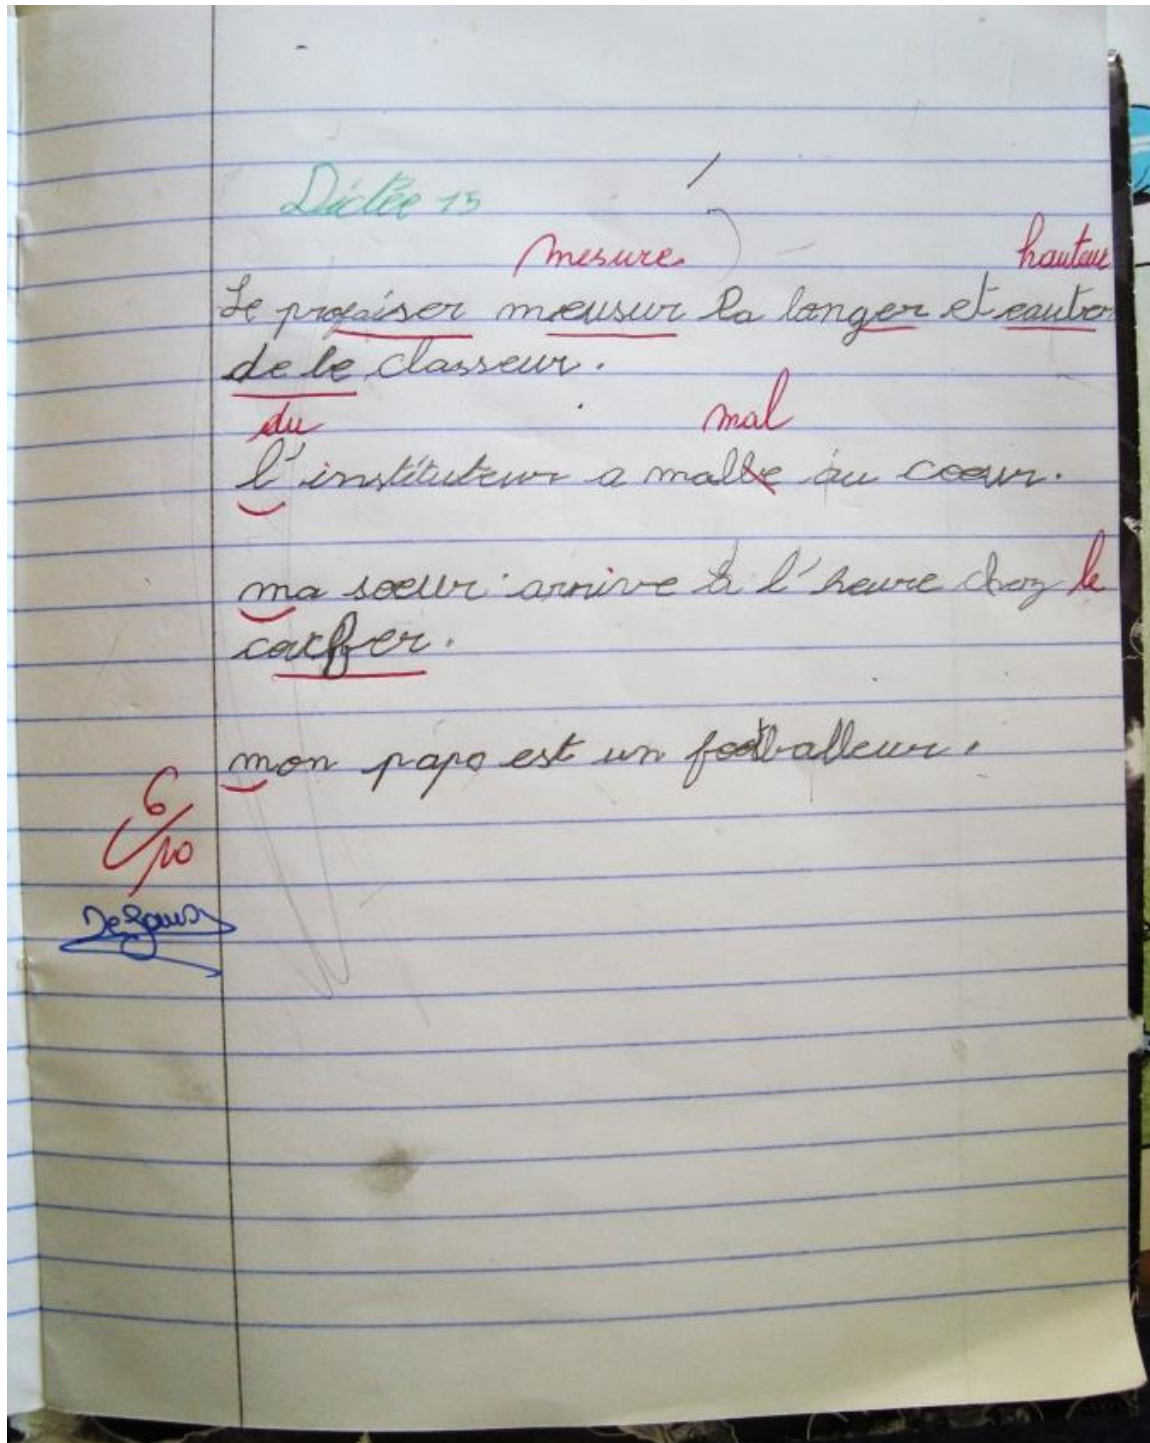 Dictée 15
mesure hauteur
Le profaiser meusur la longer et eauter
de le classeur.
du mal
l'instituteur a malle au coeur.
ma soeur arrive à l'heure chez le
caiffer.
mon papa est un footballeur.
6/10